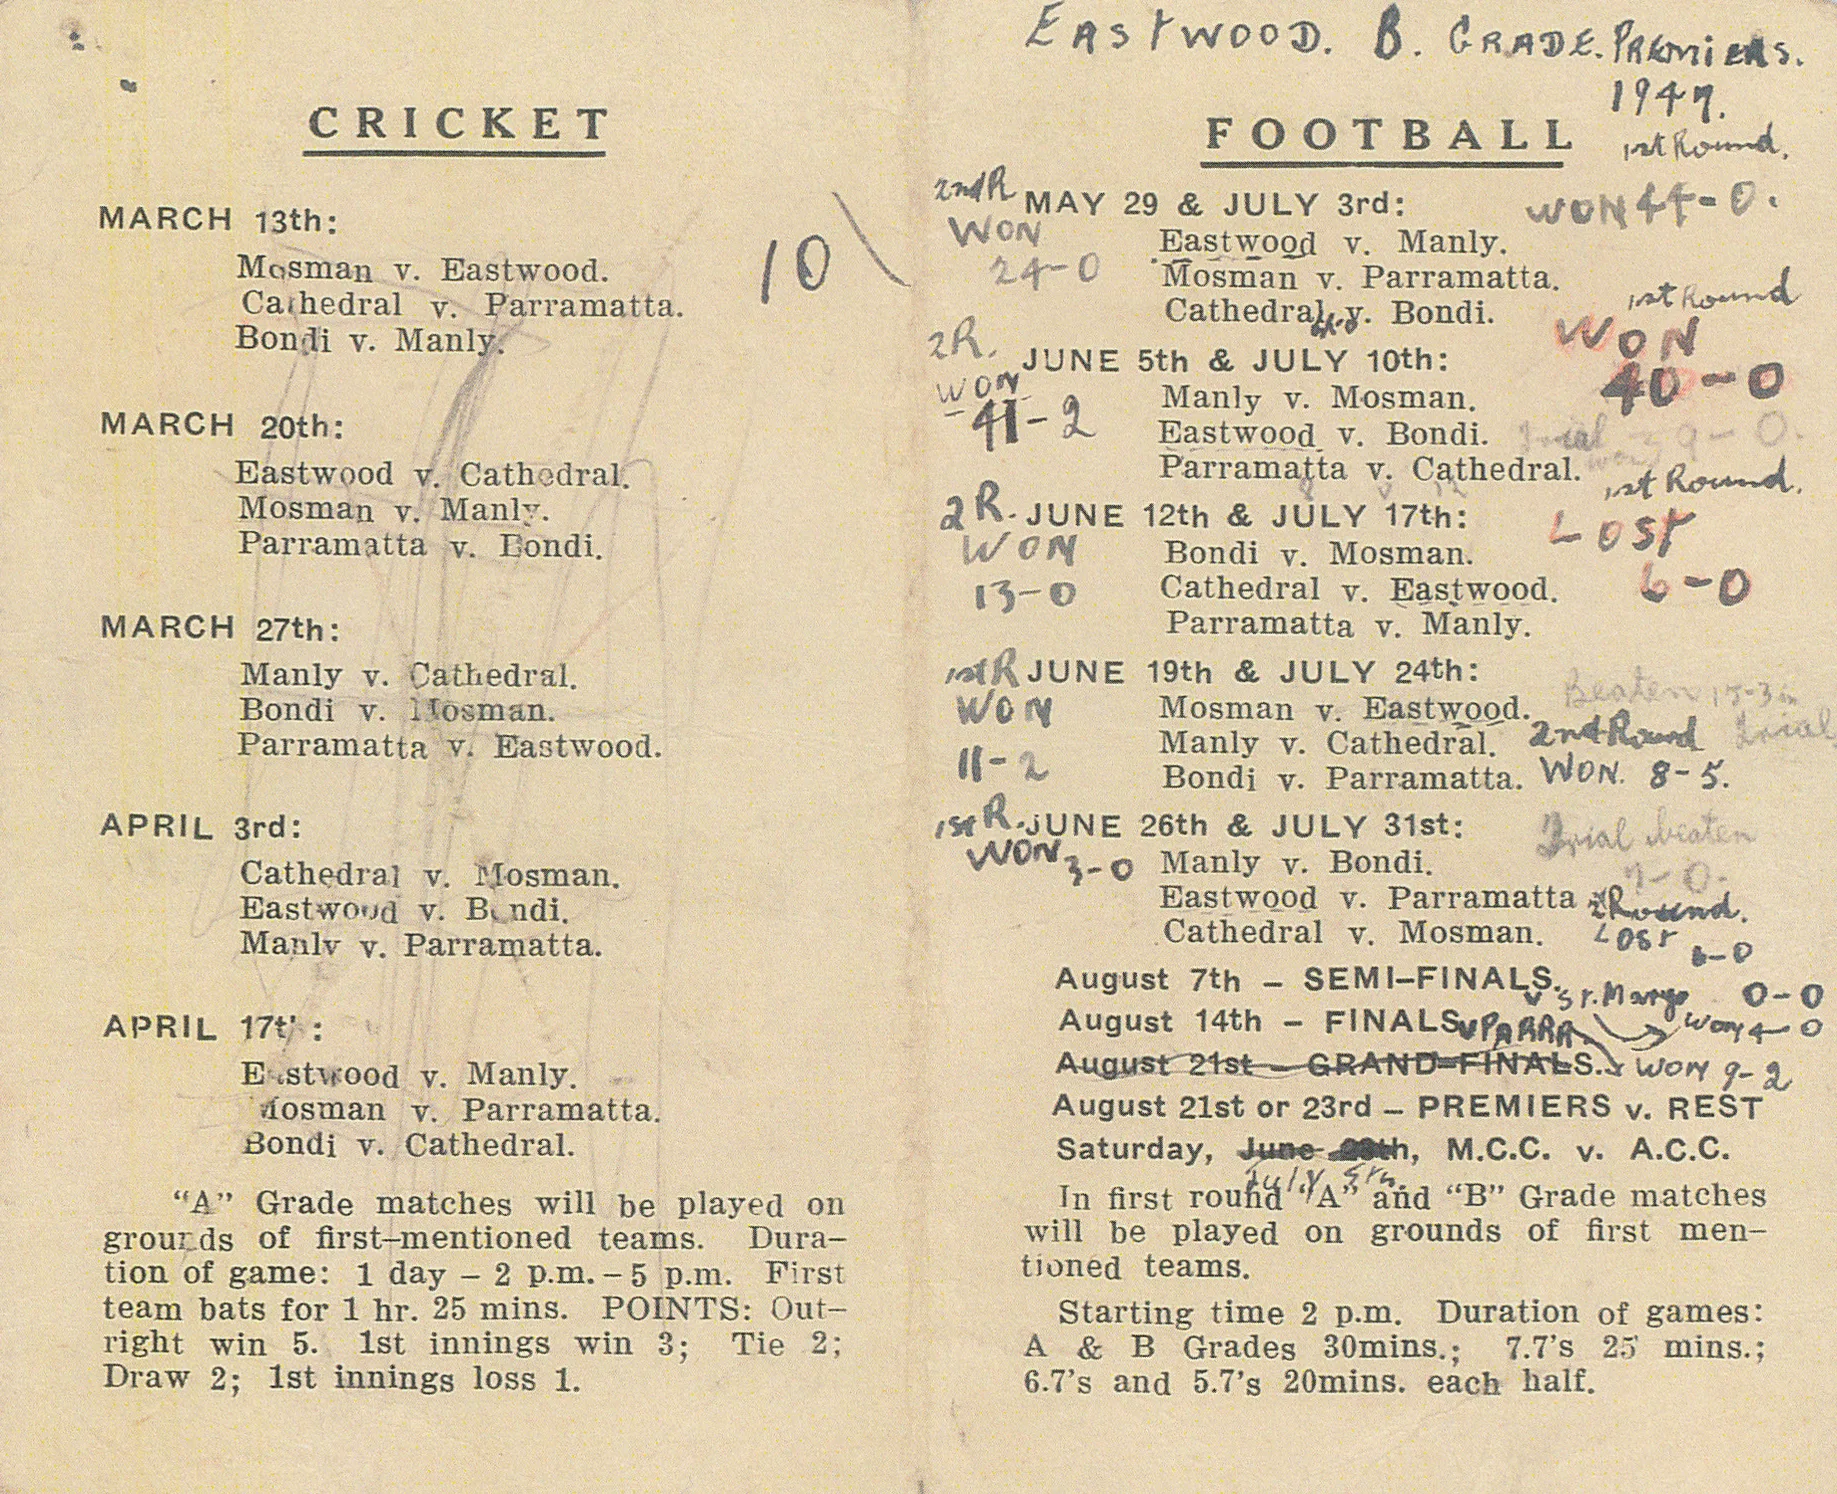 CRICKET
MARCH 13th:
Mosman v. Eastwood.
Cathedral v. Parramatta.
Bondi v. Manly.
10
MARCH 20th:
Eastwood v. Cathedral.
Mosman v. Manly.
Parramatta v. Bondi.
MARCH 27th:
Manly v. Cathedral.
Bondi v. Mosman.
Parramatta v. Eastwood.
APRIL 3rd:
Cathedral v. Mosman.
Eastwood v. Bondi.
Manly v. Parramatta.
APRIL 17th:
Eastwood v. Manly.
Mosman v. Parramatta.
Bondi v. Cathedral.
"A" Grade matches will be played on
grounds of first-mentioned teams. Dura-
tion of game: 1 day – 2 p.m. – 5 p.m. First
team bats for 1 hr. 25 mins. POINTS: Out-
right win 5. 1st innings win 3; Tie 2;
Draw 2; 1st innings loss 1.
EASTWOOD. B. GRADE. PREMIERS.
1947.
FOOTBALL
1st Round.
2nd R MAY 29 & JULY 3rd: WON 44-0.
WON Eastwood v. Manly.
24-0 Mosman v. Parramatta.
Cathedral v. Bondi. 1st Round
2R. JUNE 5th & JULY 10th: WON
WON Manly v. Mosman. 40-0
41-2 Eastwood v. Bondi. Trial
Parramatta v. Cathedral. 1st Round.
2R. JUNE 12th & JULY 17th: LOST
WON Bondi v. Mosman.
13-0 Cathedral v. Eastwood. 6-0
Parramatta v. Manly.
1st R JUNE 19th & JULY 24th: Beaten 15-3 in
WON Mosman v. Eastwood. Trial
Manly v. Cathedral. 2nd Round
11-2 Bondi v. Parramatta. WON. 8-5.
1st R. JUNE 26th & JULY 31st: Trial beaten
WON 3-0 Manly v. Bondi. 7-0.
Eastwood v. Parramatta 2 Round.
Cathedral v. Mosman. LOST 6-0
August 7th – SEMI-FINALS. v St. Marys 0-0
August 14th – FINALS v PARRA. WON 4-0
August 21st – GRAND-FINALS. WON 9-2
August 21st or 23rd – PREMIERS v. REST
Saturday, June, M.C.C. v. A.C.C.
July
In first round "A" and "B" Grade matches
will be played on grounds of first men-
tioned teams.
Starting time 2 p.m. Duration of games:
A & B Grades 30mins.; 7.7's 25 mins.;
6.7's and 5.7's 20mins. each half.